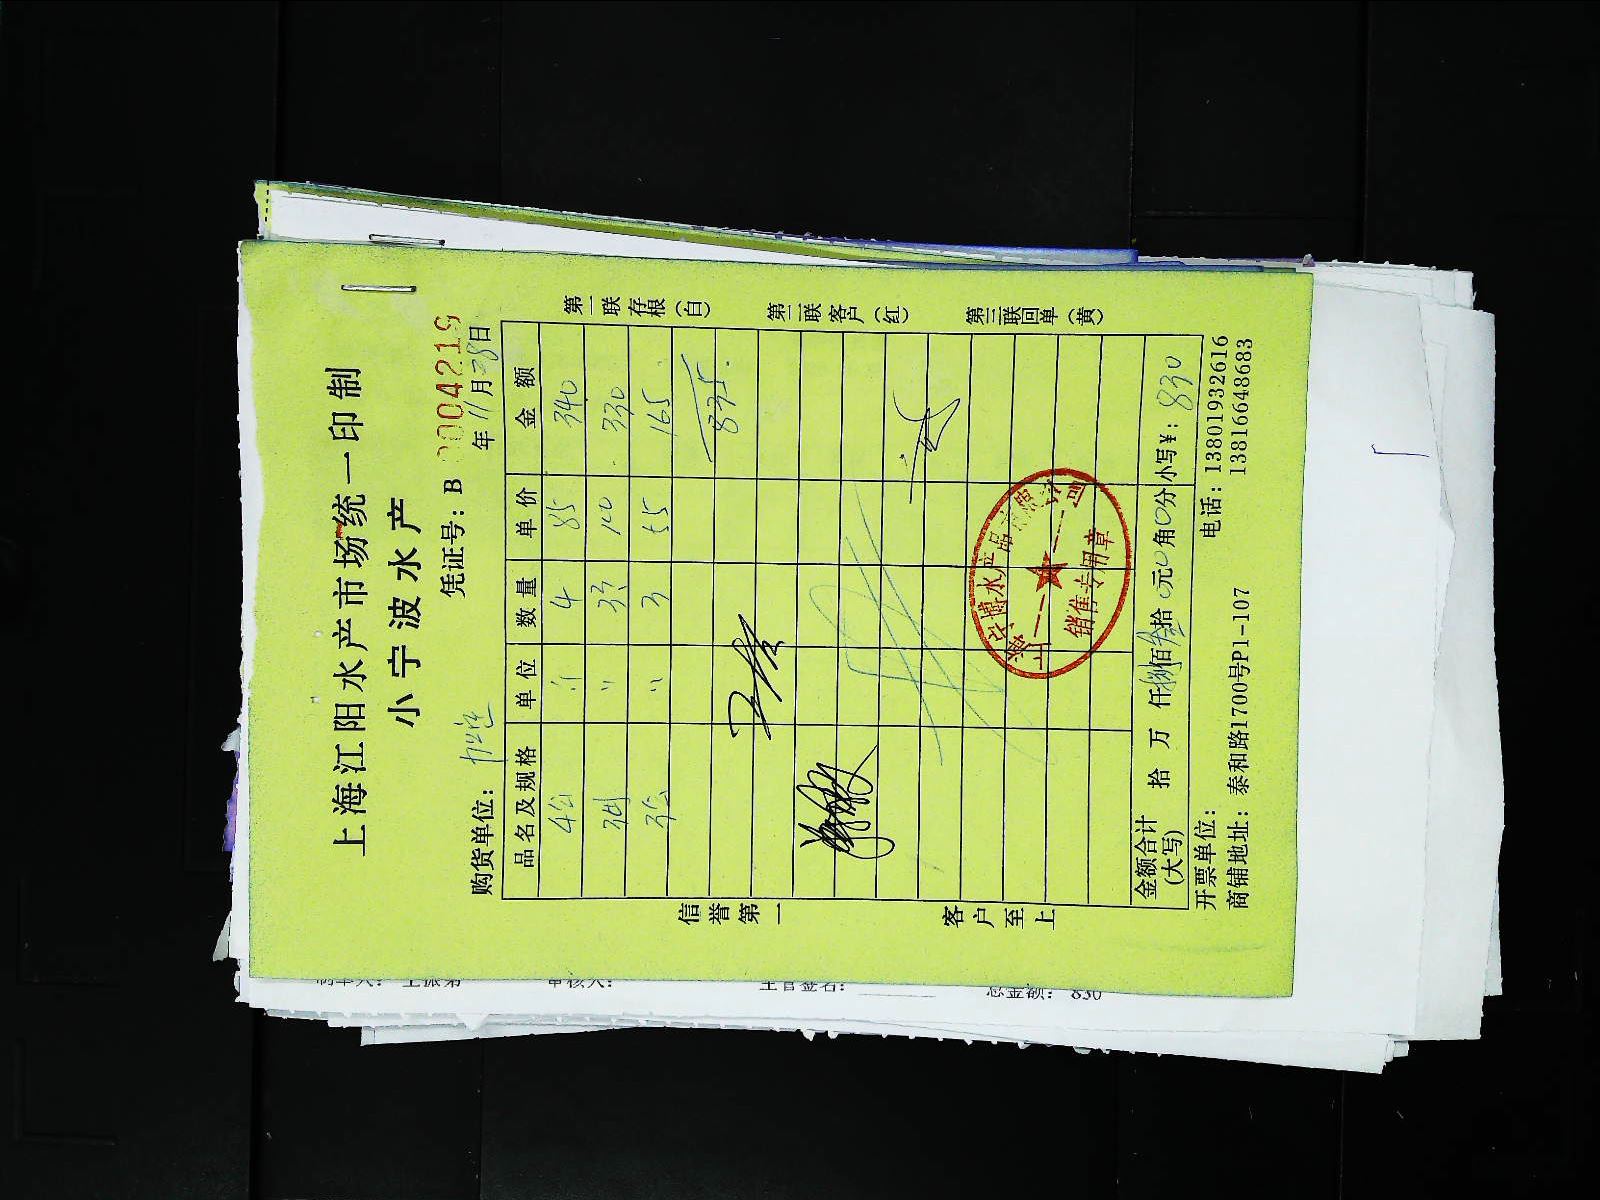 上海江阳水产市场统一印制
小宁波水产
凭证号：B 0004219
购货单位： 年 11 月 28 日
品名及规格 单位 数量 单价 金额
4 85 340
〃 3.3 100 330
〃 3 55 165
835
信誉第一
客户至上
第一联存根（白）
第二联客户（红）
第三联回单（黄）
上海宁博水产品有限公司
销售专用章
金额合计（大写） 拾 万 仟 捌 佰 叁 拾 0 元 0 角 0 分 小写¥：830
开票单位： 电话：13801932616
商铺地址：泰和路1700号P1-107 13816648683
制单人： 王振弟 审核人： 主管签名： 总金额： 830